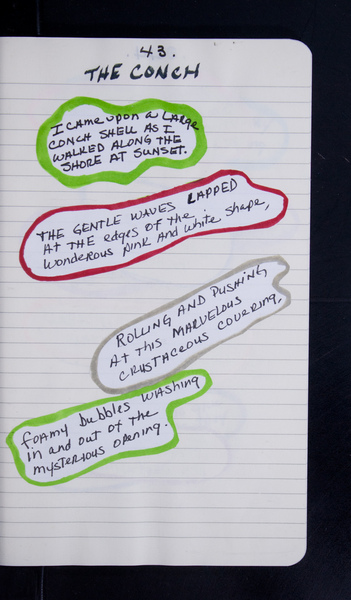 43.
THE CONCH
I CAME UPON A LARGE
CONCH SHELL AS I
WALKED ALONG THE
SHORE AT SUNSET.
THE GENTLE WAVES LAPPED
AT THE edges of the
wonderous pink and white shape,
ROLLING AND PUSHING
AT THIS MARVELOUS
CRUSTACEOUS COVERING,
foamy bubbles washing
in and out of the
mysterious opening.